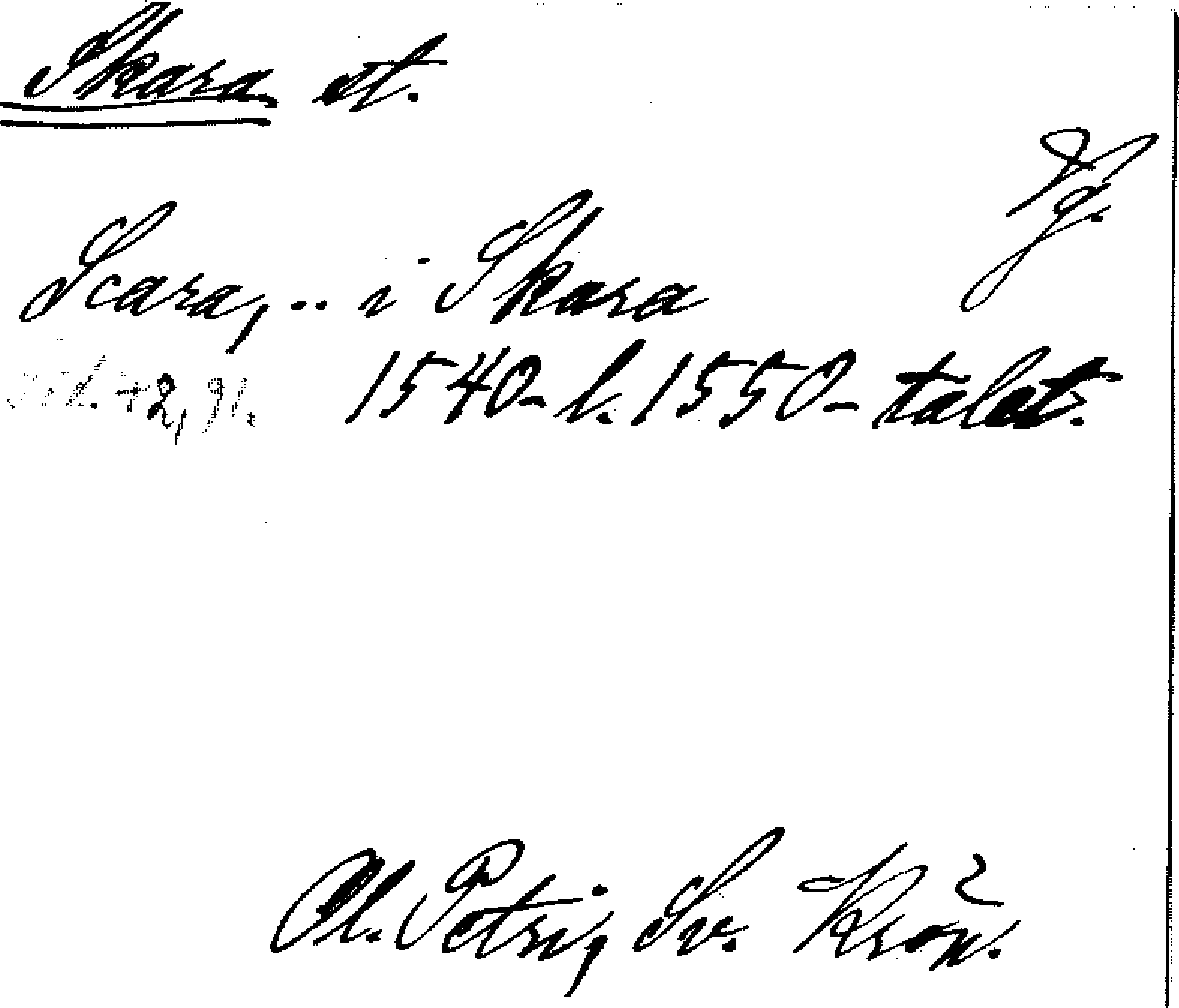 Skara st.
Vg.
Scara, .. i Skara
1540- l. 1550-talet.
Ol. Petri, Sv. Krön.